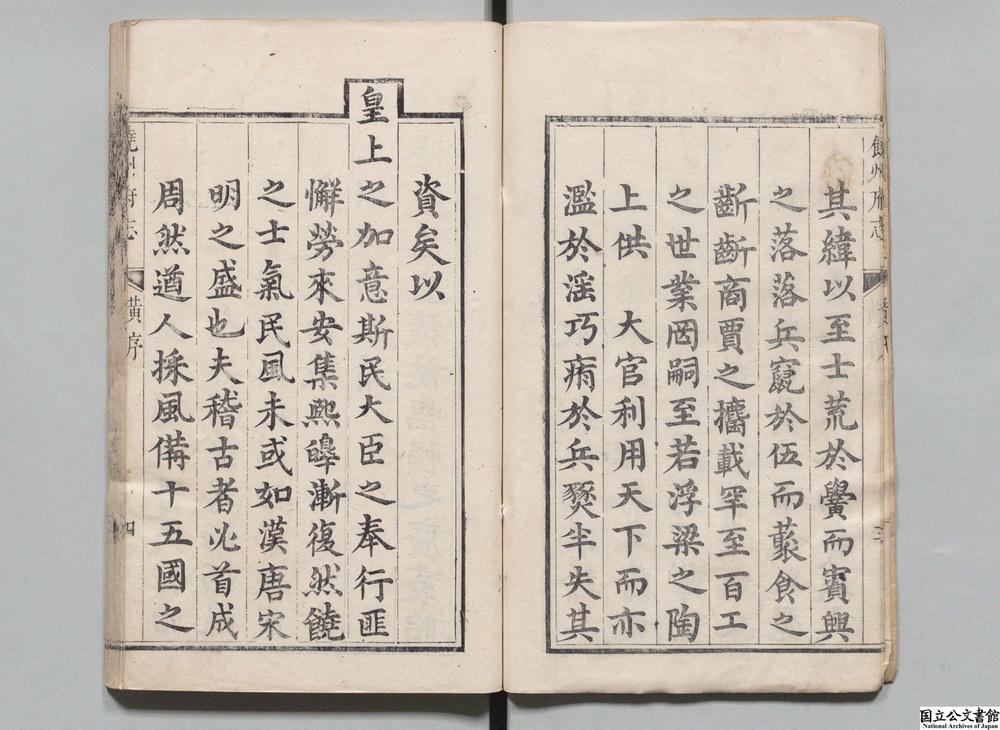 饒州府志
三
其緯以至士荒於黌而賓興
之落落兵竄於伍而蓺食之
齗齗商賈之攜載罕至百工
之世業罔嗣至若浮梁之陶
上供 大官利用天下而亦
濫於滛巧痡於兵燹半失其
資矣以
皇上之加意斯民大臣之奉行匪
懈勞來安集熙皞漸復然饒
之士氣民風未或如漢唐宋
明之盛也夫稽古者必首成
周然遒人採風備十五國之
饒州府志
黃序
四
国立公文書館
National Archives of Japan